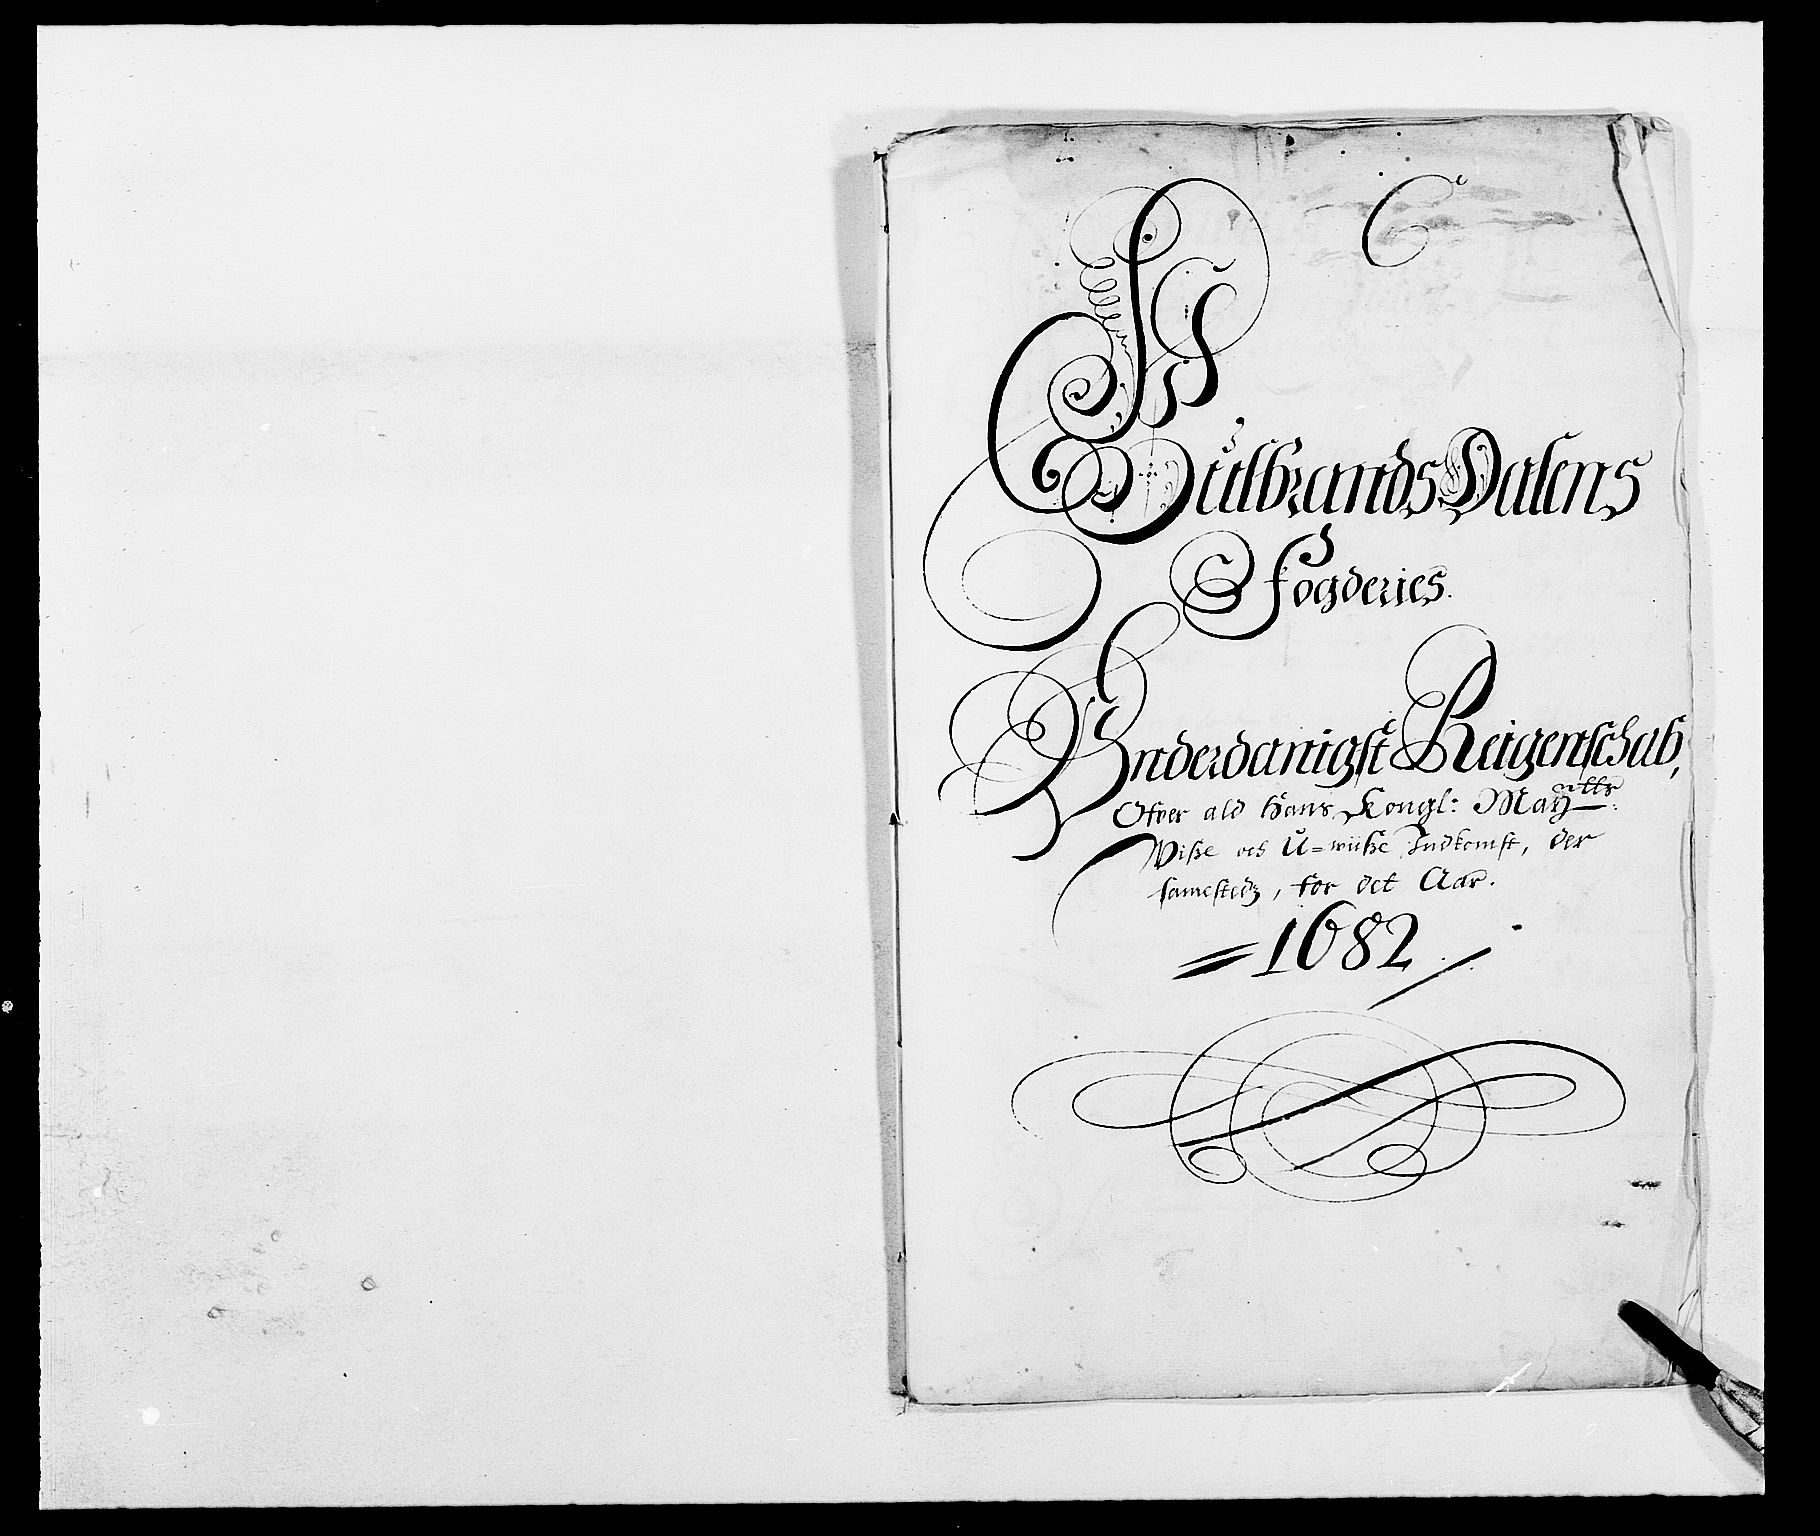 C
GulbrandsDalens
Fogderies.
Vnderdanigst Reigenschab,
Ofver ald Hans Kongl: May<sup>tts</sup>:
Wiße och U=wiße Indkomst, der
samestedz, for det Aar.
=1682